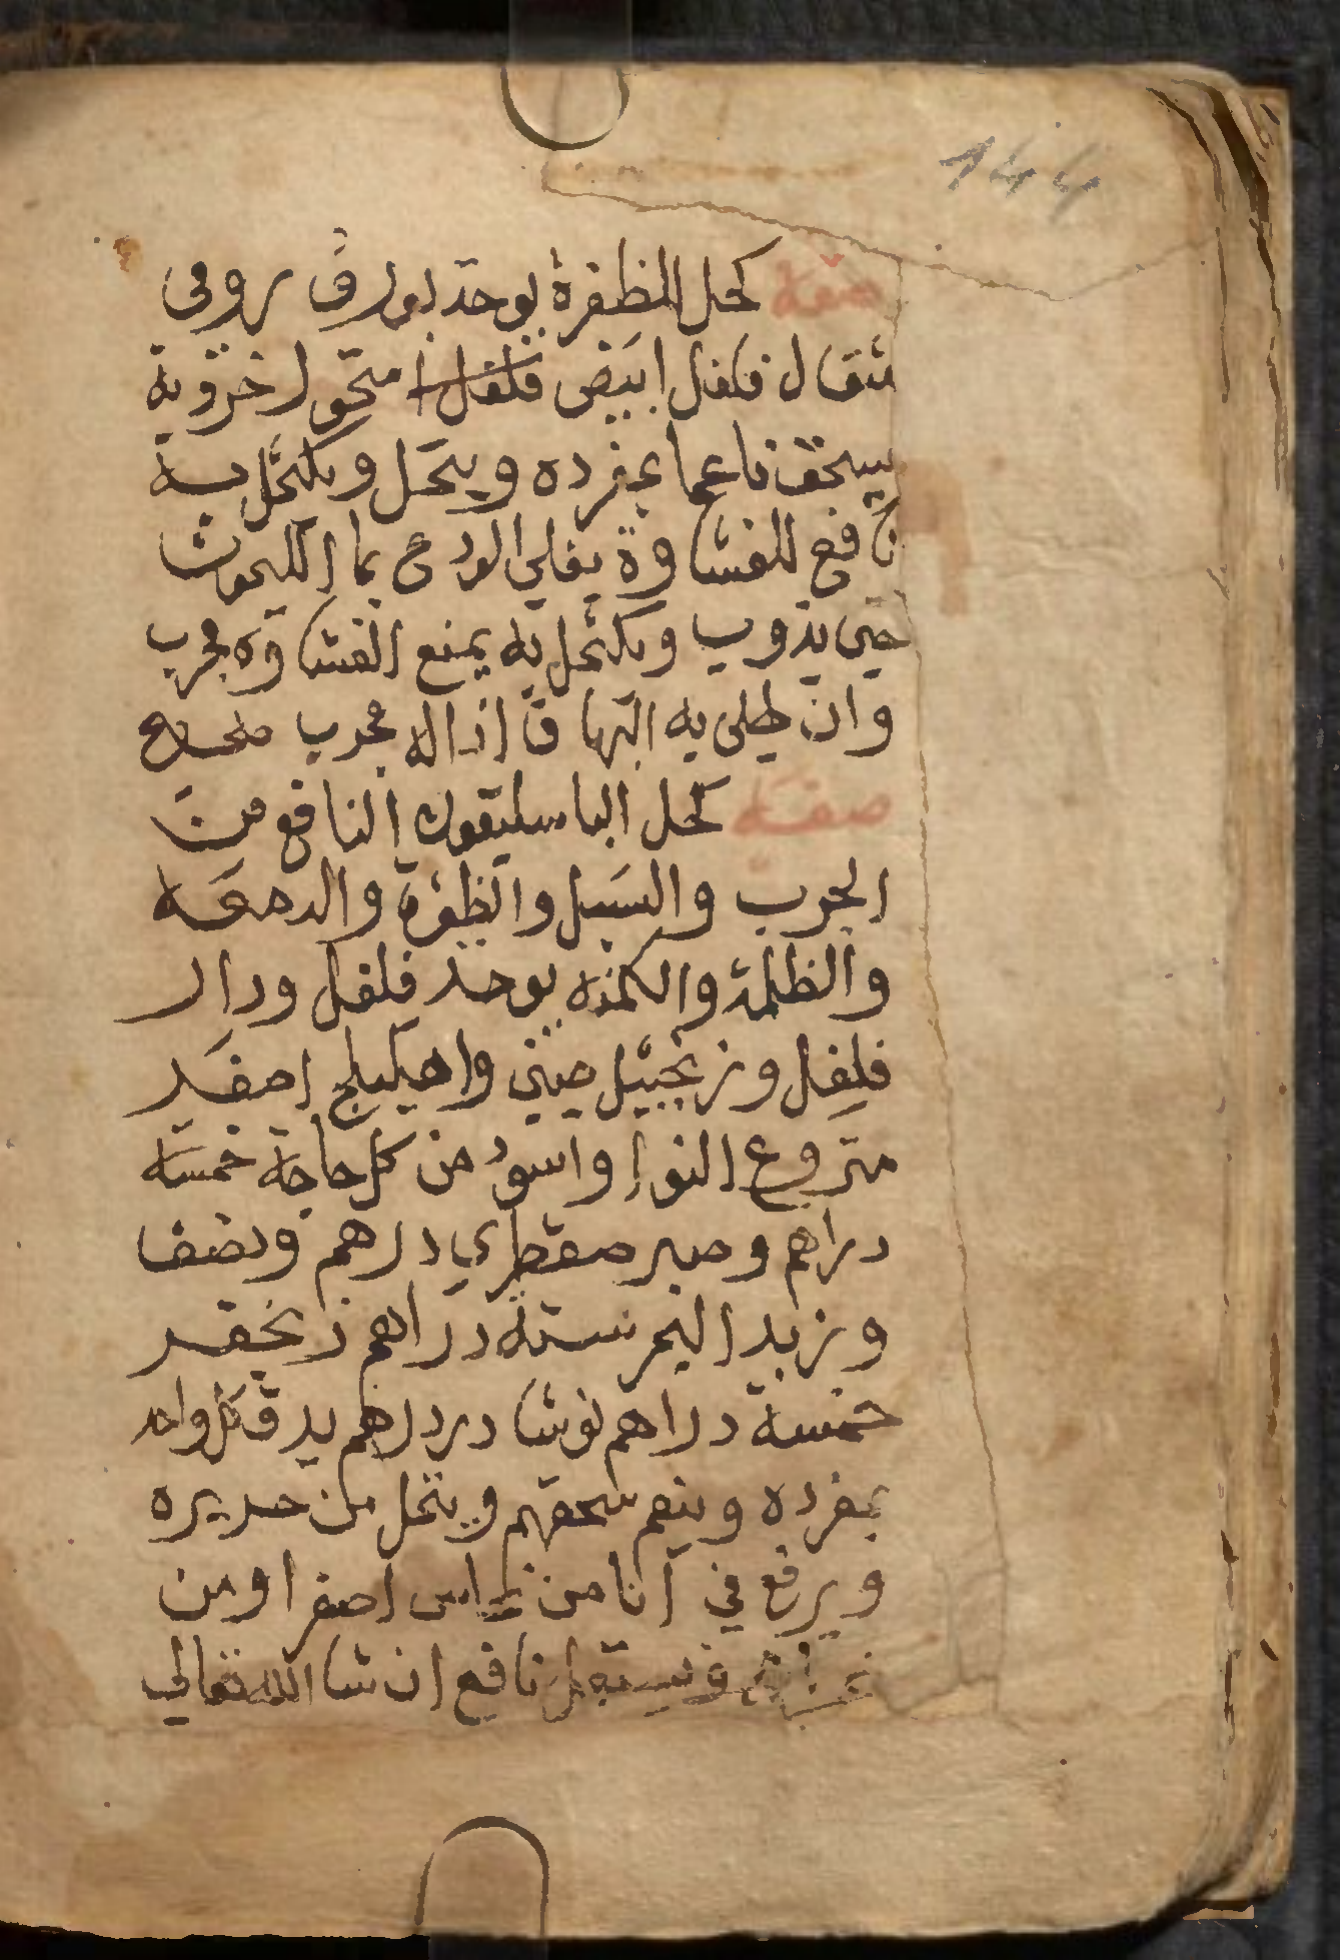 144
صفة كحل للظفرة يوخذ بورق رومي
مثقال فلفل ابيض فلفل متحول خروبة
يسحق ناعما بمفرده وينحل ويكتحل به
نافع للغشاوة يغلي الودع بما الليمون
حتى يذوب ويكتحل به يمنع الغشاوه مجرب
وان طلى به البهاق ازاله مجرب
صفة كحل الباسليقون النافع من
الجرب والسبل والظفرة والدمعه
والظلمة والكمنه يوخذ فلفل ودار
فلفل وزنجبيل صيني واهيليلج اصفر
منزوع النوا واسود من كل حاجة خمسة
دراهم وصبر صقطري درهم ونصف
وزبد البحر ستة دراهم زنجفر
خمسة دراهم نوشادر درهم يدق كل واحد
بمفرده وينعم سحقهم وينحل من حريره
ويرفع في انا من نحاس اصفر او من
ويستعمل نافع ان شا الله تعالى